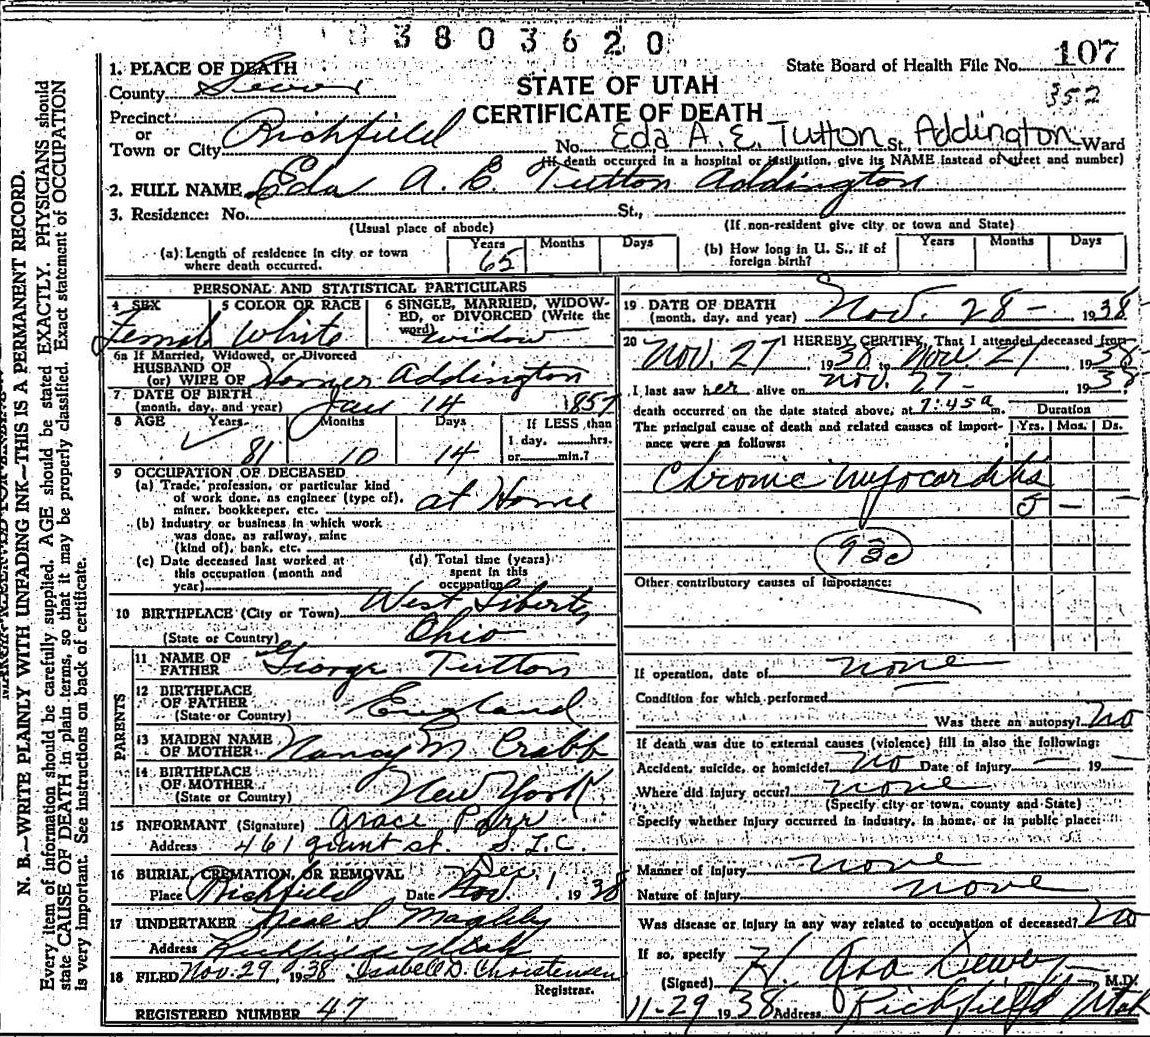 3803620
State Board of Health File No. 107
352
1. PLACE OF DEATH
County Sevier
STATE OF UTAH
CERTIFICATE OF DEATH
Precinct
or
Town or City Richfield No. Eda A. E. Tutton St., Addington Ward
(If death occurred in a hospital or institution, give its NAME instead of street and number)
2. FULL NAME Eda A. E. Tutton Addington
3. Residence: No. St.,
(Usual place of abode) (If non-resident give city or town and State)
(a) Length of residence in city or town where death occurred. Years 65 Months Days
(b) How long in U. S., if of foreign birth? Years Months Days
PERSONAL AND STATISTICAL PARTICULARS
4 SEX Female
5 COLOR OR RACE White
6 SINGLE, MARRIED, WIDOWED, or DIVORCED (Write the word) widow
6a If Married, Widowed, or Divorced
HUSBAND OF
(or) WIFE OF Homer Addington
7 DATE OF BIRTH
(month, day, and year) Jan 14 1857
8 AGE Years 81 Months 10 Days 14 If LESS than 1 day, hrs. or min.?
9 OCCUPATION OF DECEASED
(a) Trade, profession, or particular kind
of work done, as engineer (type of),
miner, bookkeeper, etc. at Home
(b) Industry or business in which work
was done, as railway, mine
(kind of), bank, etc.
(c) Date deceased last worked at
this occupation (month and
year)
(d) Total time (years)
spent in this
occupation
10 BIRTHPLACE (City or Town) West Liberty
(State or Country) Ohio
PARENTS
11 NAME OF
FATHER George Tutton
12 BIRTHPLACE
OF FATHER
(State or Country) England
13 MAIDEN NAME
OF MOTHER Nancy M Crabb
14 BIRTHPLACE
OF MOTHER
(State or Country) New York
15 INFORMANT (Signature) Grace Parr
Address 461 Grant st. S.L.C.
16 BURIAL, CREMATION, OR REMOVAL
Place Richfield Date Nov Dec 1 1938
17 UNDERTAKER Neal S Magleby
Address Richfield Utah
18 FILED Nov. 29 1938 Isabell D. Christensen
Registrar.
REGISTERED NUMBER 47
19 DATE OF DEATH
(month, day, and year) Nov. 28 - 1938
20 I HEREBY CERTIFY, That I attended deceased from
Nov. 27 1938 to Nov. 27 1938
I last saw her alive on Nov. 27 - 1938
death occurred on the date stated above, at 7:45 a m.
The principal cause of death and related causes of importance were as follows:
Duration
Yrs. Mos. Ds.
Chronic Myocarditis
5 - -
93c
Other contributory causes of importance:
If operation, date of none
Condition for which performed
Was there an autopsy? No
If death was due to external causes (violence) fill in also the following:
Accident, suicide, or homicide? No Date of injury — 19 —
Where did injury occur? none
(Specify city or town, county and State)
Specify whether injury occurred in industry, in home, or in public place:
Manner of injury none
Nature of injury none
Was disease or injury in any way related to occupation of deceased? No
If so, specify
(Signed) H Asa Dewey M.D.
11-29 1938 Address Richfield Utah
N. B.—WRITE PLAINLY WITH UNFADING INK—THIS IS A PERMANENT RECORD.
Every item of information should be carefully supplied. AGE should be stated EXACTLY. PHYSICIANS should
state CAUSE OF DEATH in plain terms, so that it may be properly classified. Exact statement of OCCUPATION
is very important. See instructions on back of certificate.